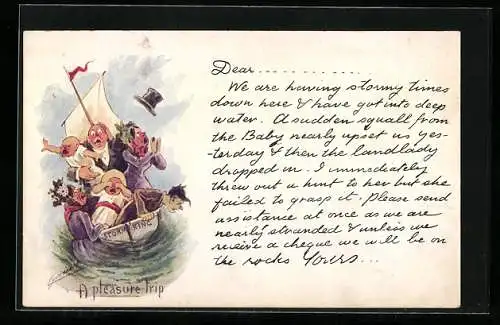 Dear..............
We are having stormy times
down here & have got into deep
water. A sudden squall from
the Baby nearly upset us yes-
-terday & then the landlady
dropped in. I immediately
threw out a hint to her but she
failed to grasp it. Please send
assistance at once as we are
nearly stranded & unless we
receive a cheque we will be on
the rocks Yours...
A pleasure trip